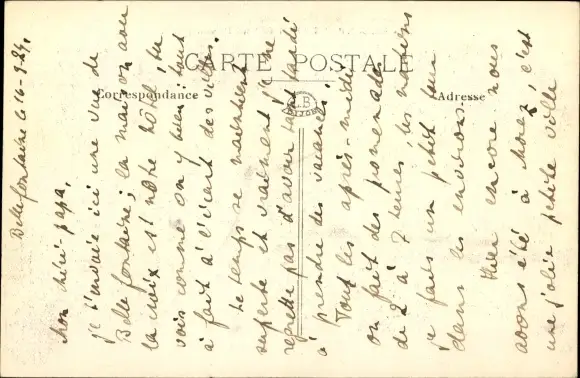 CARTE POSTALE
Correspondance
Adresse
Bellefontaine le 16-9-24.
Mon chéri-papa,
je t'envoie ici une vue de
Bellefontaine; la maison avec
la croix est notre hôtel, tu
vois comme on y bien tout
à fait à l'écart des villes.
Le temps se maintient
superbe et vraiment je ne
regrette pas d'avoir tant tardé
à prendre des vacances.
Tout les après-midi
on fait des promenades
de 2 à 7 heures, les matins
je fais un petit tour
dans les environs.
Hier encore nous
avons été à Morez, c'est
une jolie petite ville